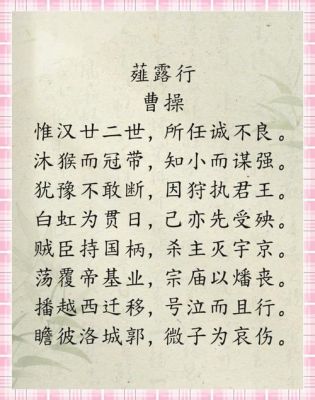 薤露行
曹操
惟汉廿二世，所任诚不良。
沐猴而冠带，知小而谋强。
犹豫不敢断，因狩执君王。
白虹为贯日，己亦先受殃。
贼臣持国柄，杀主灭宇京。
荡覆帝基业，宗庙以燔丧。
播越西迁移，号泣而且行。
瞻彼洛城郭，微子为哀伤。